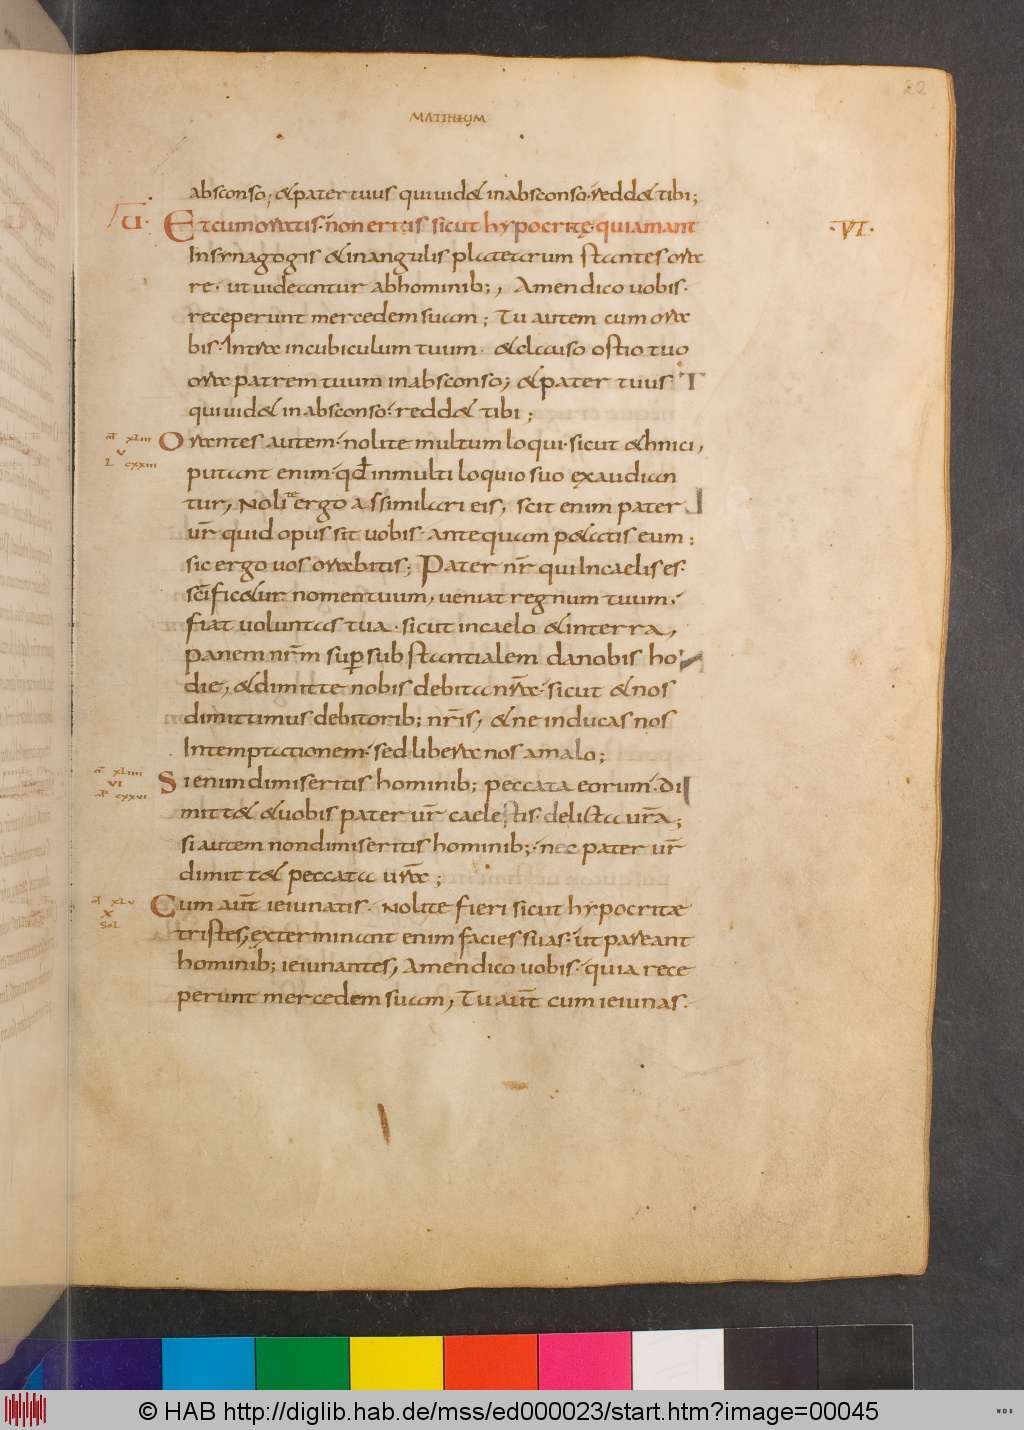 22
MATTHEUM
absconso; & pater tuus qui uid& in absconso· redd& tibi;
U· Et cum oratis· non eritis sicut hypocritę· qui amant ·VI·
In synagogis & in angulis platearum stantes ora
re· ut uideantur ab hominib;, Amen dico uobis·
receperunt mercedem suam; Tu autem cum ora
bis· Intra in cubiculum tuum· & clauso ostio tuo
ora patrem tuum in absconso; & pater tuus
qui uid& in absconso· redd& tibi;
a͞ XLIII Orantes autem· nolite multum loqui· sicut & hnici,
V
L CXXIII putant enim· qđ in multi loquio suo exaudian
tur, Nolite ergo assimilari eis, scit enim pater
ur̄ quid opus sit uobis· ante quam p&atis eum;
sic ergo uos orabitis; Pater nr̄ qui In caelis es·
sc̄ific&ur nomen tuum, ueniat regnum tuum,
fiat uoluntas tua· sicut in caelo & in terra,
panem nr̄m suꝑ sub stantialem da nobis ho
die, & dimitte nobis debita nr̄a· sicut & nos
dimittimus debitorib; nr̄is, & ne inducas nos
In temptationem· sed libera nos a malo;
a͞ XLIIII Si enim dimiseritis hominib; peccata eorum· di
VI
CXXVI mitt& & uobis pater ur̄ caelestis· delicta ur̄a;
si autem non dimiseritis hominib;· nec pater ur̄
dimitt& peccata ur̄a;
a͞ XLV Cum aut̄ ieiunatis· Nolite fieri sicut hypocritæ
X
Sol tristes, exterminant enim facies suas· ut pareant
hominib; ieiunantes, Amen dico uobis· quia rece
perunt mercedem suam, Tu aut̄ cum ieiunas·
© HAB http://diglib.hab.de/mss/ed000023/start.htm?image=00045